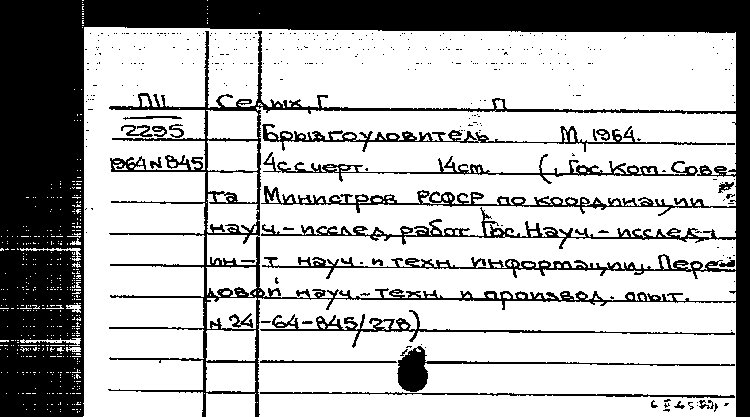 ПII Седых, Г. П
2295 Брызгоуловитель. М., 1964.
1964 N 845 4с с черт. 14см. (Гос. Ком. Сове-
та Министров РСФСР по координации
науч.-исслед. работ Гос. Науч.-исслед.
ин-т науч. и техн. информации. Пере-
довой науч.-техн. и производ. опыт.
N 24-64-845/278)